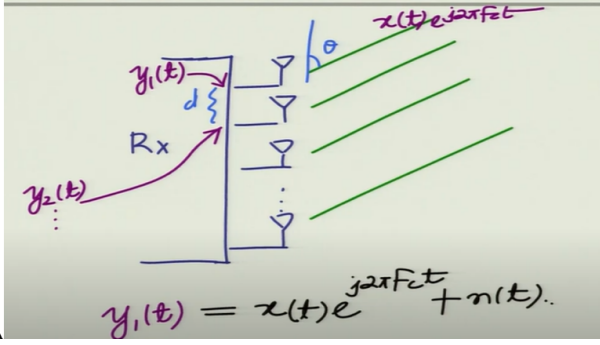 x(t)e^{j2πFct}
θ
y₁(t)
d
Rx
y₂(t)
⋮
y₁(t) = x(t)e^{j2πFct} + n(t)..